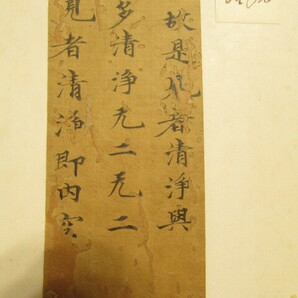 故是見者清淨與
多清淨无二无二
見者清淨即內空